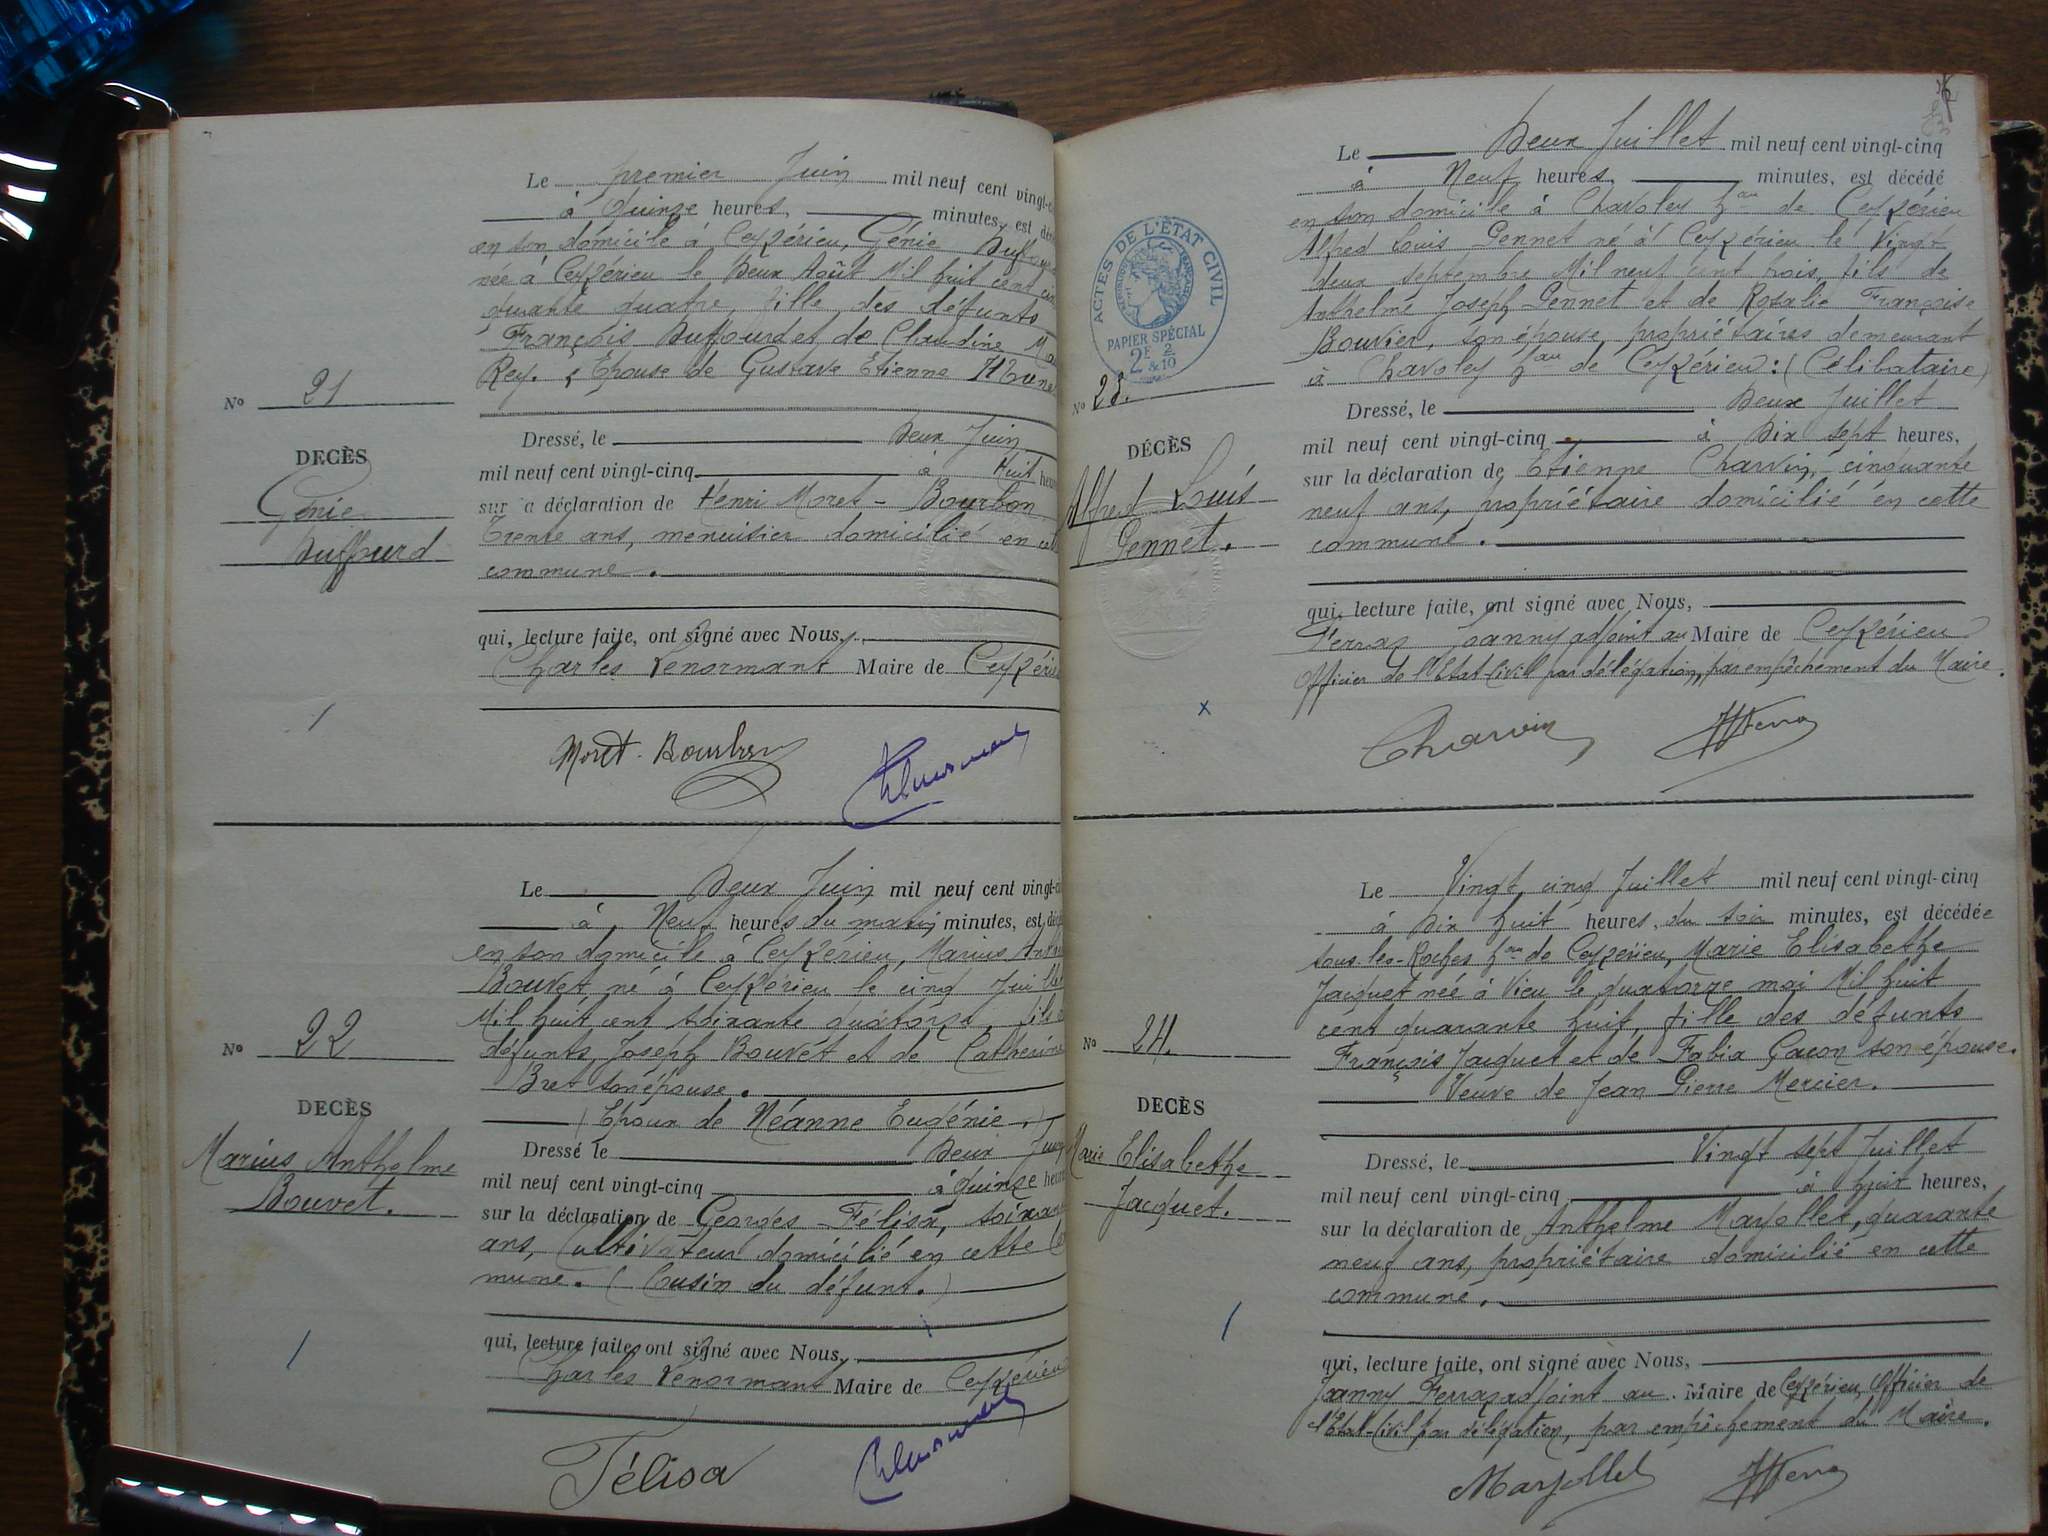 Le premier Juin mil neuf cent vingt-
à Quinze heures, minutes, est
en son domicile à Ceyzérieu, Génie
née à Ceyzérieu le Deux Août Mil huit cent
quante quatre, fille des défunts
François Duffourd et de Claudine
Rey. Epouse de Gustave Etienne
No 21
DECÈS
Génie
Duffourd
Dressé, le Deux Juin
mil neuf cent vingt-cinq à Huit
sur la déclaration de Henri Moret-Bourbon
Trente ans, menuisier domicilié en
commune.
qui, lecture faite, ont signé avec Nous,
Charles Lenormant Maire de
Moret-Bourbon
Le Deux Juin mil neuf cent
à Neuf heures du matin minutes, est
en son domicile à Ceyzérieu, Marius
Bouvet né à Ceyzérieu le cinq Juillet
Mil huit cent soixante quatorze, fils
défunts, Joseph Bouvet et de Catherine
Bret son épouse.
(Epoux de Néanne Eugénie.)
No 22
DECÈS
Marius Anthelme
Bouvet.
Dressé le Deux Juin
mil neuf cent vingt-cinq à quinze
sur la déclaration de Georges Félisa,
ans, Cultivateur domicilié en cette
mune. (Cousin du défunt.)
qui, lecture faite, ont signé avec Nous,
Charles Lenormant Maire de Ceyzérieu
Félisa
Le Deux Juillet mil neuf cent vingt-cinq
à Neuf heures, minutes, est décédé
en son domicile à Chavoley hau de Ceyzérieu
Alfred Louis Pennet né à Ceyzérieu le Vingt
deux septembre Mil neuf cent trois, fils de
Anthelme Joseph Pennet et de Rosalie Françoise
Bouvier, son épouse, propriétaires demeurant
à Chavoley hau de Ceyzérieu: (Célibataire)
ACTES DE L'ÉTAT CIVIL
RÉPUBLIQUE FRANÇAISE
PAPIER SPÉCIAL
2F & 2/10
No 23.
DÉCÈS
Alfred Louis
Pennet.
Dressé, le Deux Juillet
mil neuf cent vingt-cinq à Dix sept heures,
sur la déclaration de Etienne Charvin, cinquante
neuf ans, propriétaire domicilié en cette
commune.
qui, lecture faite, ont signé avec Nous,
Ferraz Joanny adjoint au Maire de Ceyzérieu
Officier de l'Etat-Civil par délégation, par empêchement du Maire.
Charvin
Le Vingt cinq Juillet mil neuf cent vingt-cinq
à Dix huit heures, du soir minutes, est décédée
sous-les-Roches hau de Ceyzérieu, Marie Elisabethe
Jacquet née à Vieu le quatorze mai Mil huit
cent quarante huit, fille des défunts
François Jacquet et de Fabia Gacon son épouse.
Veuve de Jean Pierre Mercier.
No 24.
DECÈS
Marie Elisabethe
Jacquet.
Dressé, le Vingt sept Juillet
mil neuf cent vingt-cinq à huit heures,
sur la déclaration de Anthelme Marjollet, quarante
neuf ans, propriétaire domicilié en cette
commune.
qui, lecture faite, ont signé avec Nous,
Joanny Ferraz adjoint au Maire de Ceyzérieu, Officier de
l'Etat-Civil par délégation, par empêchement du Maire.
Marjollet